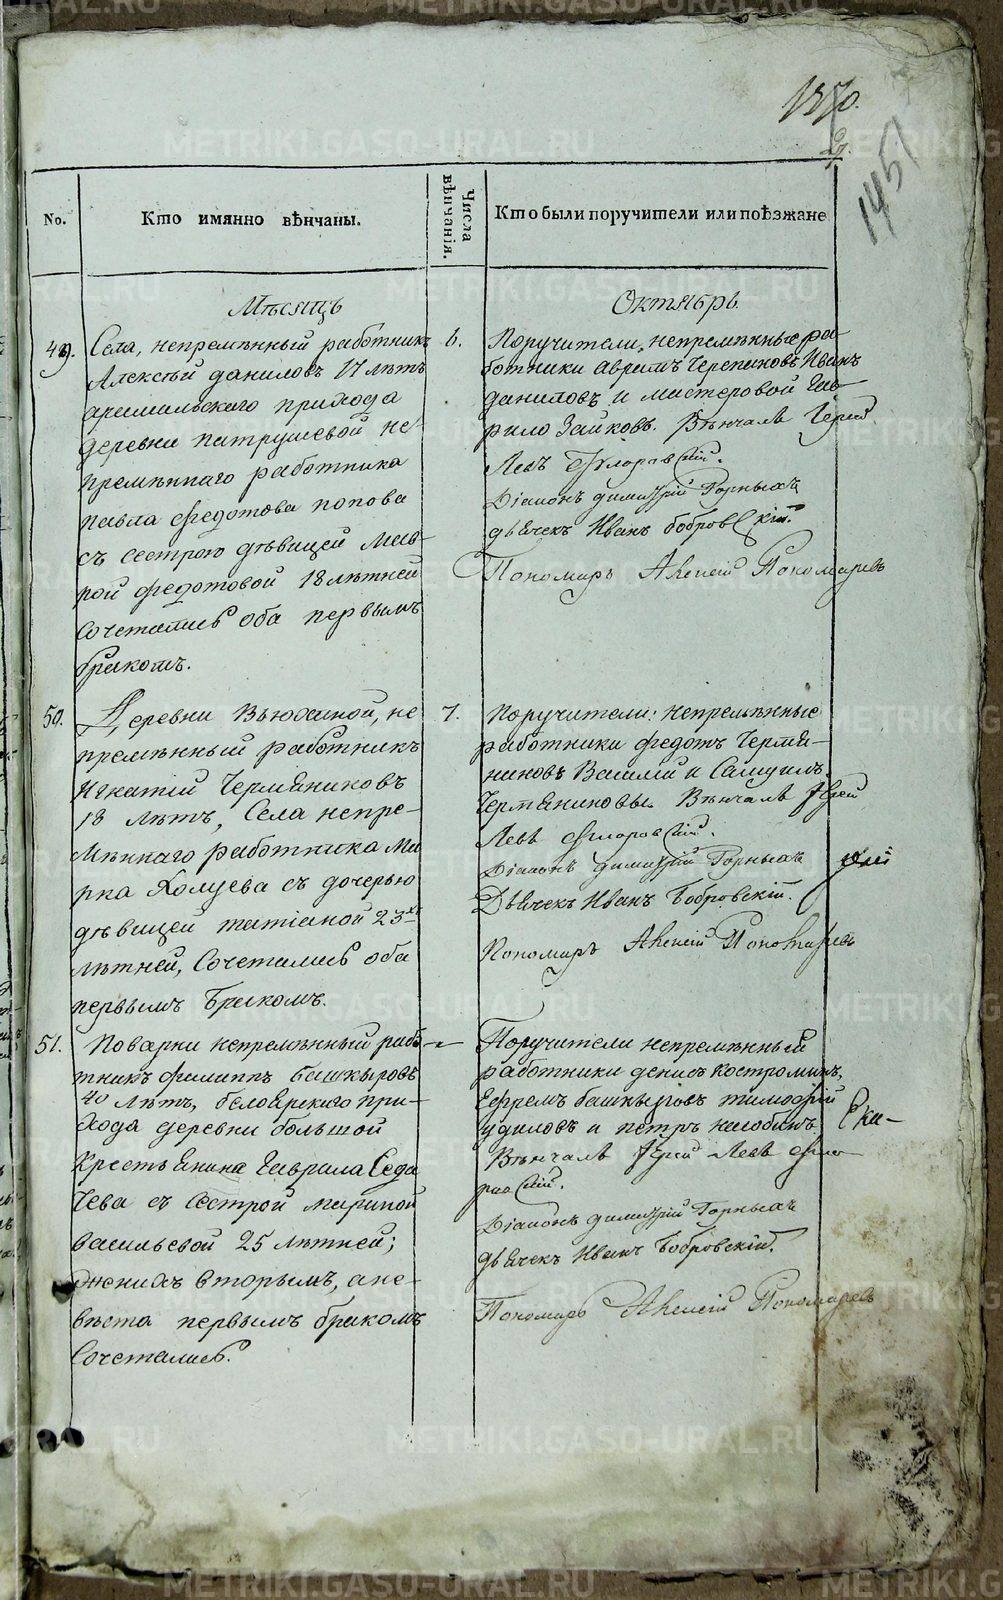 1370.
1451
No.
Кто имянно вѣнчаны.
Числа вѣнчанія.
Кто были поручители или поѣзжане
Мѣсяцъ
Октябрь.
49.
Села, непремѣнный работникъ
Алексѣй даниловъ 17 лѣтъ
арамильскаго прихода
деревни патрушевой не-
премѣннаго работника
павла федотова попова
съ сестрою дѣвицей мав-
рой федотовой 18 лѣтней
сочетались оба первымъ
бракомъ.
6.
Поручители, непремѣнные ра-
ботники Иванъ
даниловъ и мастеровой Гав-
рило Зайковъ. Вѣнчалъ Іерей
Левъ Флоровскій.
Діаконъ димитрій Горныхъ
дьячекъ Иванъ бобровскій.
Пономарь Пономаревъ
50.
Деревни Вьюхиной, не
премѣнный работникъ
Игнатій Чермяниковъ
18 лѣтъ, Села непре-
мѣннаго работника Ма
рка съ дочерью
дѣвицей татіаной 23хъ
лѣтней, Сочетались оба
первымъ бракомъ.
7.
Поручители: непремѣнные
работники федотъ Чермя-
никовъ Василій и Самуилъ
Чермяниковы. Вѣнчалъ Іерей
Левъ Флоровскій.
Діаконъ димитрій Горныхъ
Дьячекъ Иванъ Бобровскій.
Пономарь Пономаревъ
51.
Поварни непремѣнный рабо-
тникъ филиппъ башкыровъ
40 лѣтъ, белоярскаго при-
хода деревни большой
Крестьянина Гаврила Седа
чева съ сестрой мариной
васильевой 25 лѣтней;
женихъ вторымъ, а не-
вѣста первымъ бракомъ
сочетались.
Поручители непремѣнный
работники денисъ костроминъ,
Ефремъ башкыровъ тимофей
удиловъ и петръ
Вѣнчалъ Іерей Левъ Фло-
ровскій.
Діаконъ димитрій Горныхъ
дьячекъ Иванъ Бобровскій.
Пономарь Пономаревъ